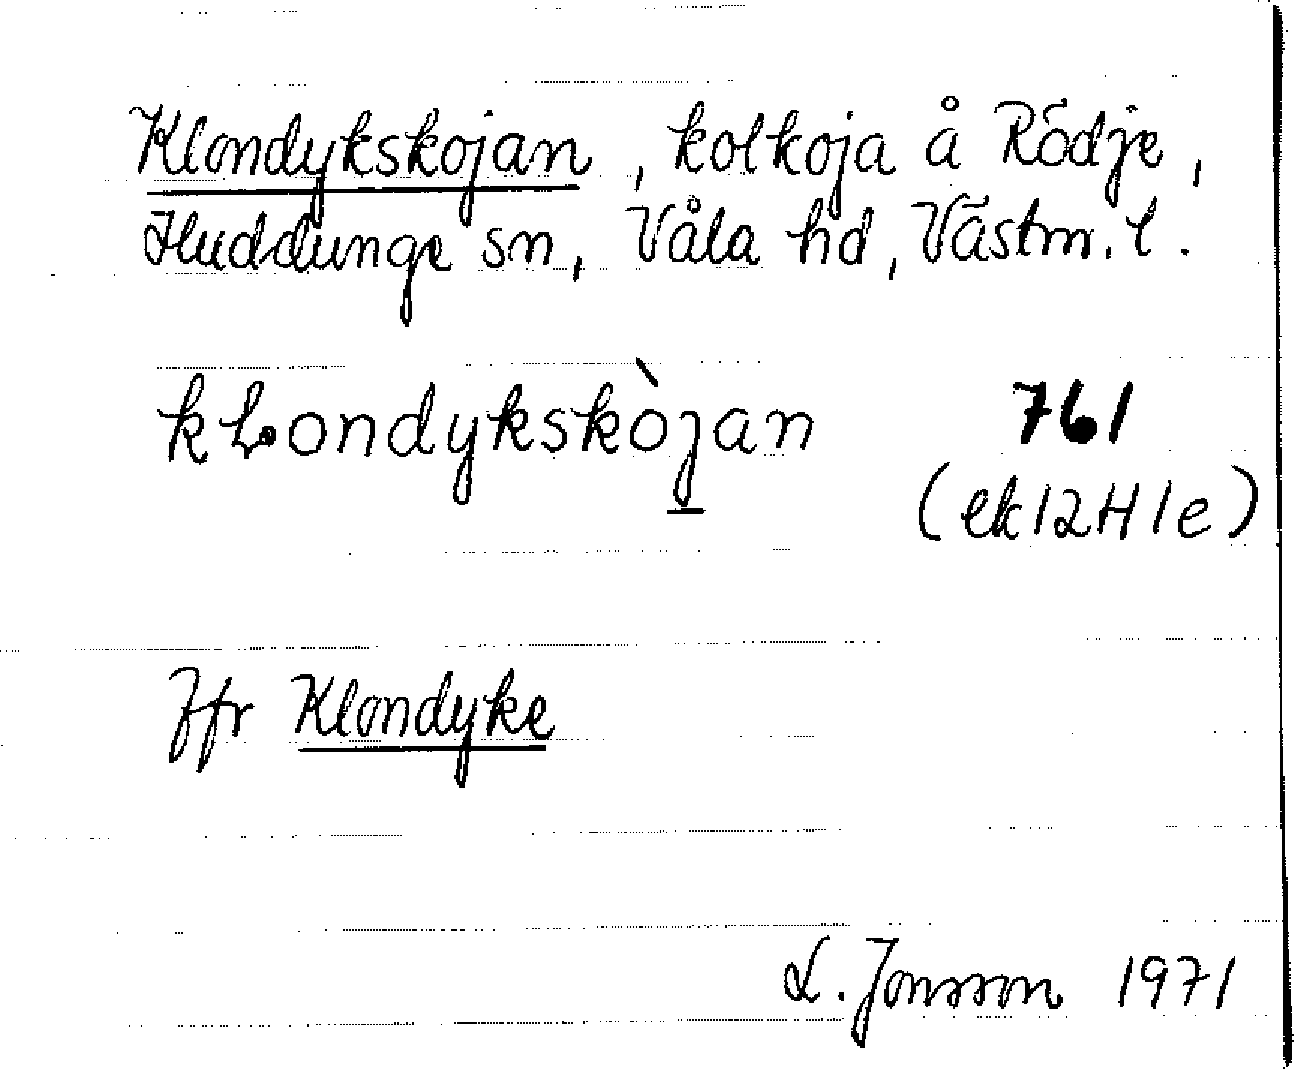 Klondykskojan, kolkoja å Rödje,
Huddunge sn, Våla hd, Västm. l.
kLondykskòjan 761
(ek 12H 1e)
Jfr Klondyke
L. Jonsson 1971